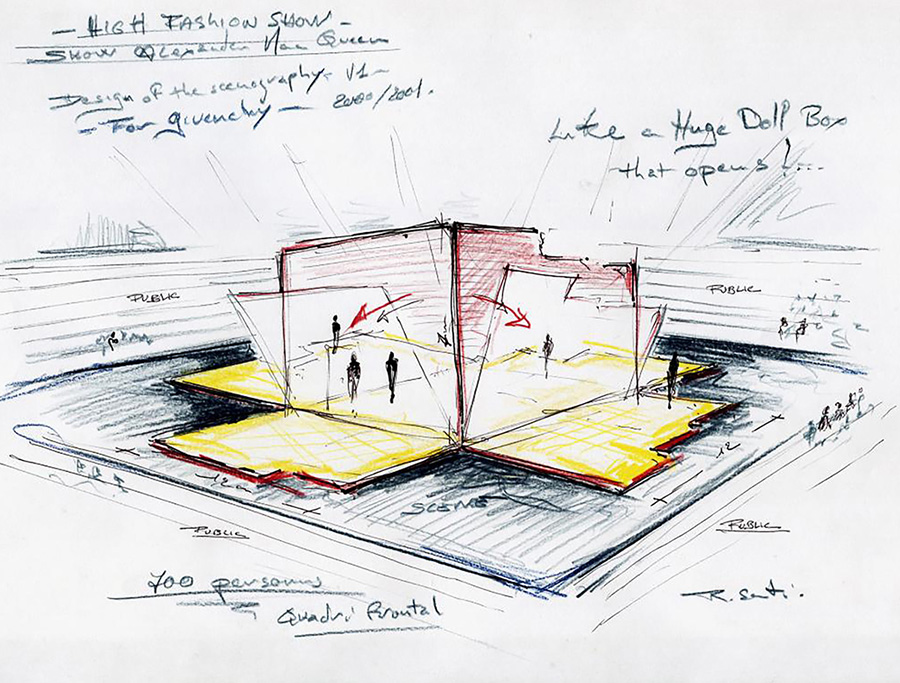 - HIGH FASHION SHOW -
SHOW Alexander Mac Queen
Design of the scenography - V1 -
- For givenchy - 2000/2001.
Like a Huge Doll Box
that opens!...
PUBLIC
PUBLIC
12 m
12
SCENE
PUBLIC
PUBLIC
700 persons
Quadri frontal
R. Santi.